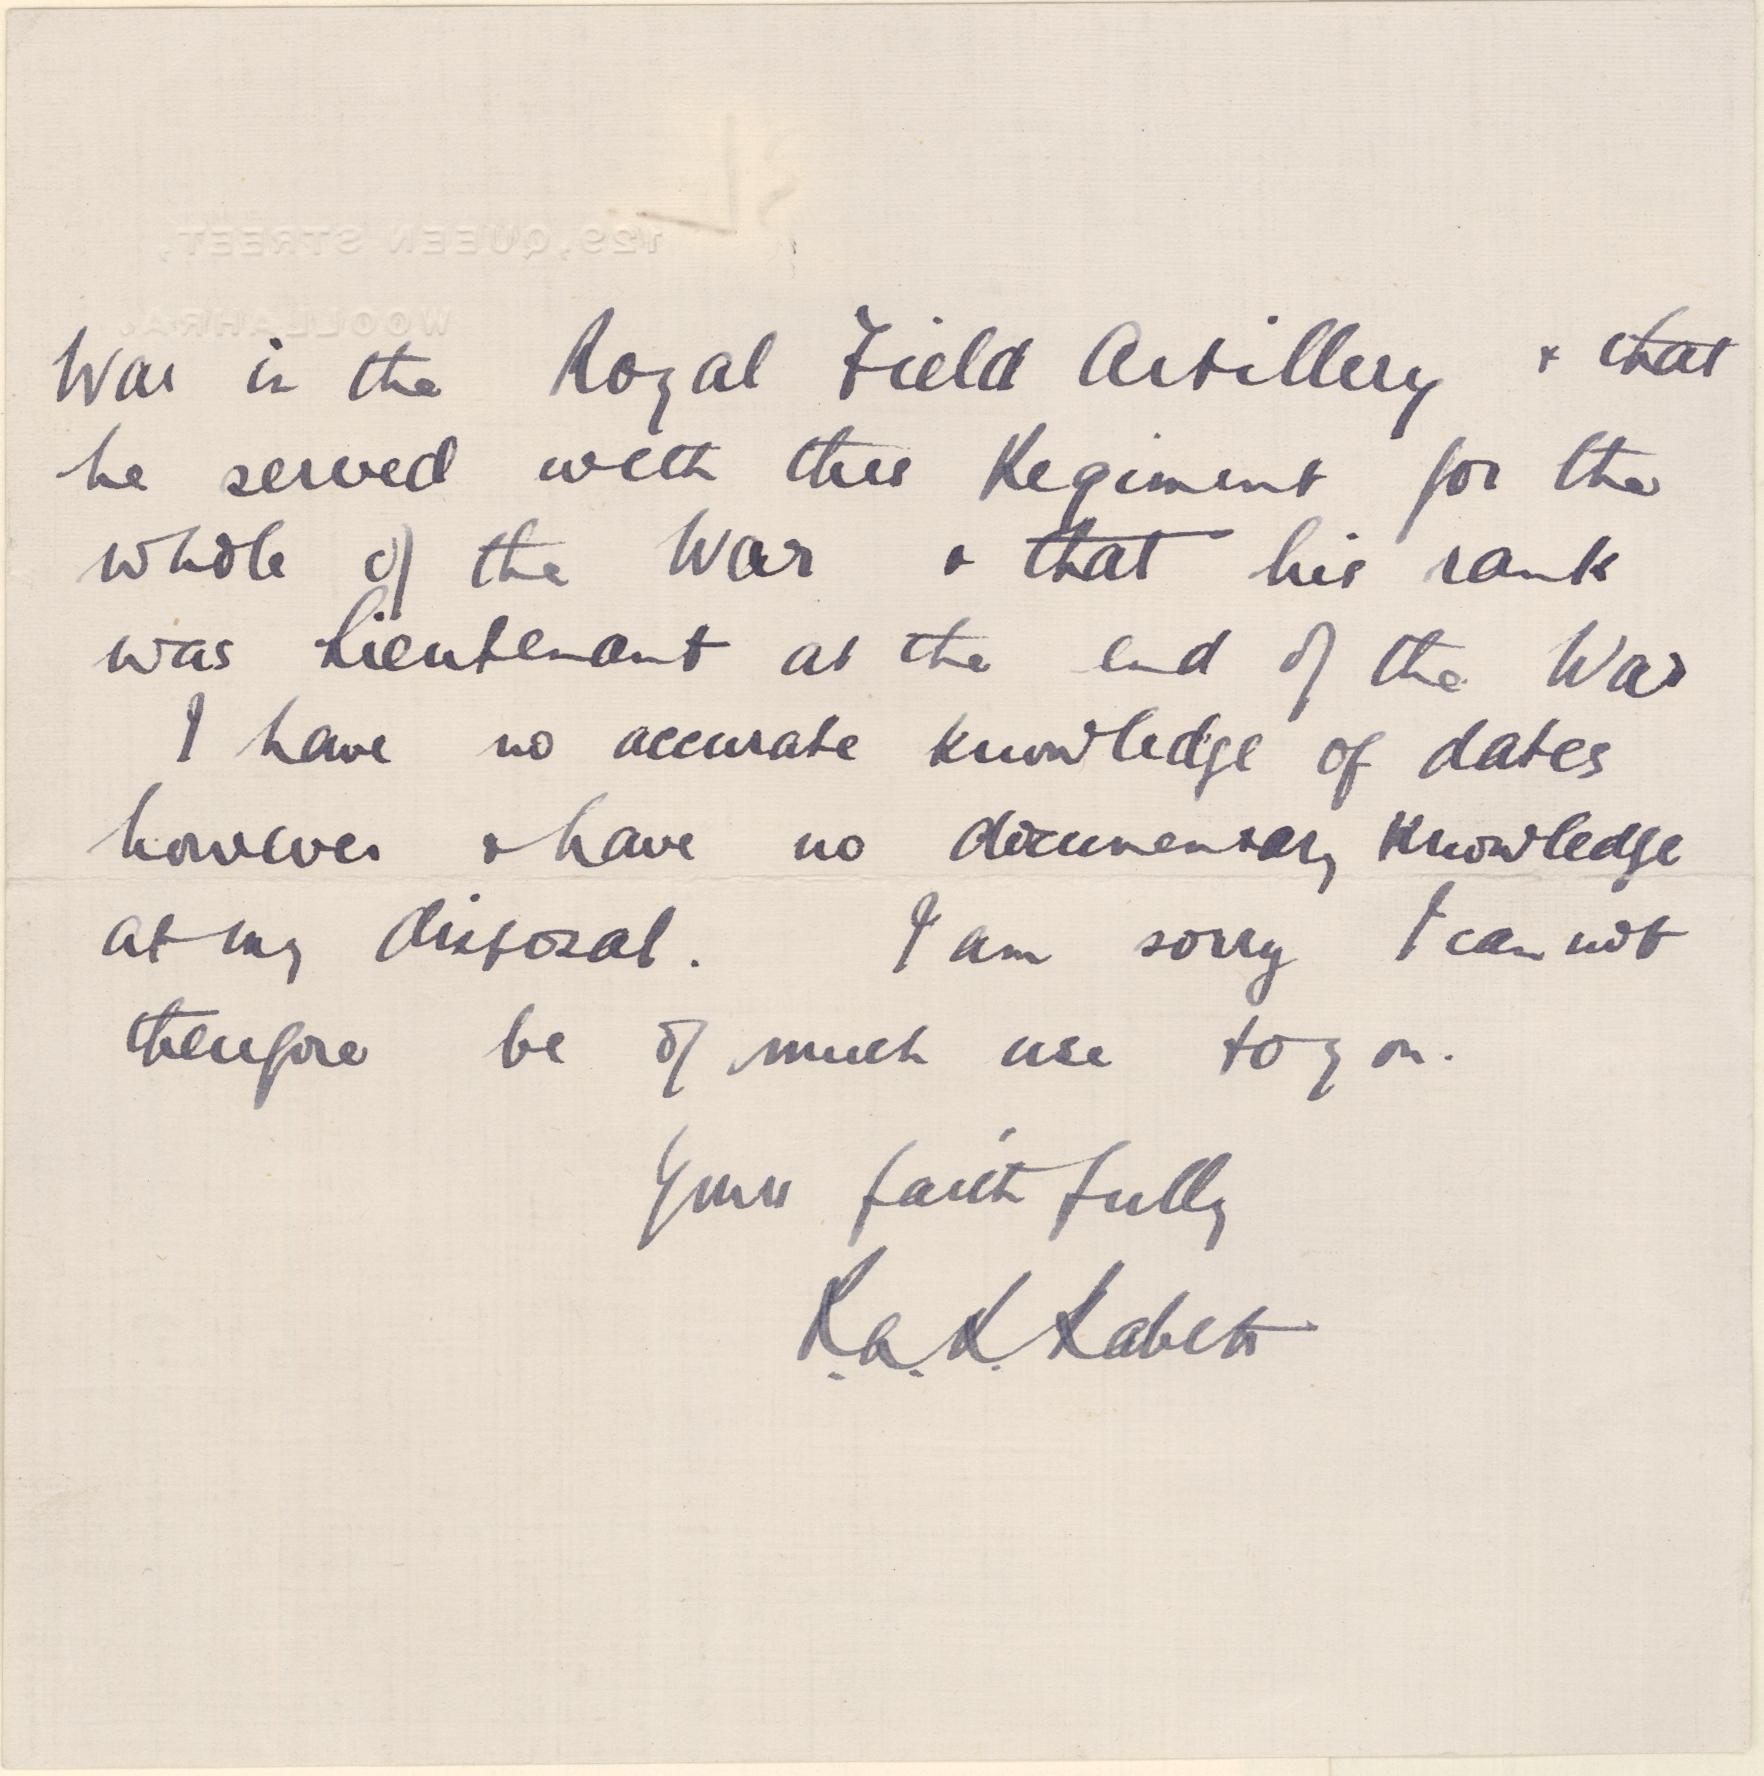 129, QUEEN STREET,
WOOLLAHRA.
War in the Royal Field Artillery & that
he served with this Regiment for the
whole of the War & that his rank
was Lieutenant at the end of the War
I have no accurate knowledge of dates
however & have no documentary knowledge
at my disposal. I am sorry I cannot
therefore be of much use to you.
Yours faithfully
R.A.K.